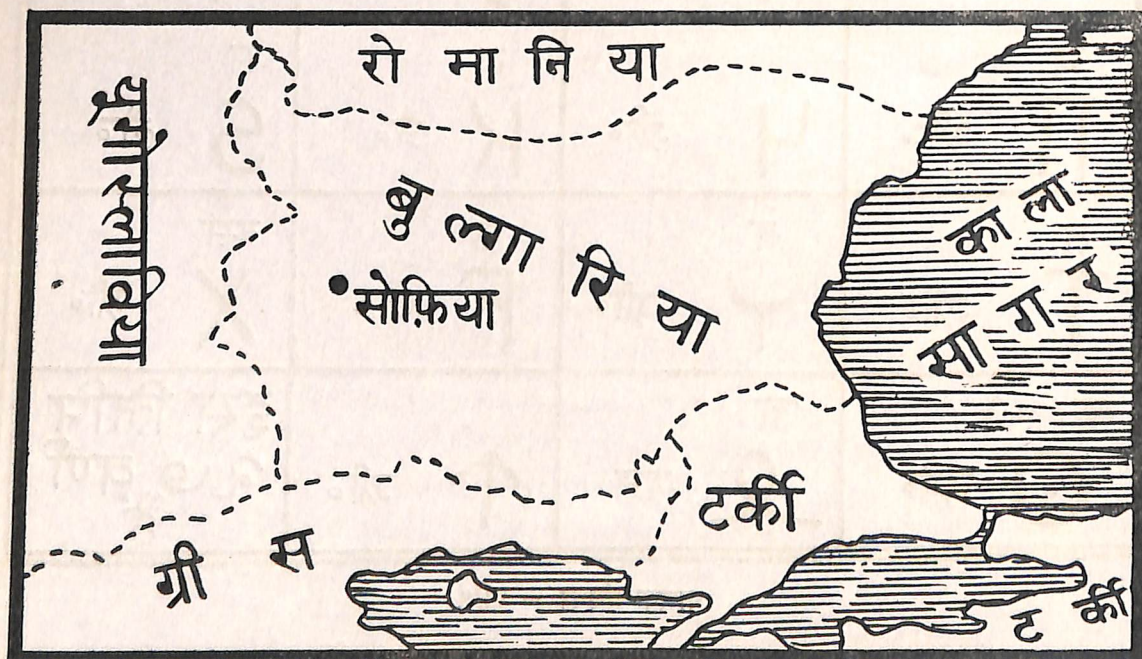 रोमानिया
युगोस्लाविया
बुल्गारिया
सोफ़िया
काला
सागर
टर्की
ग्रीस
टर्की